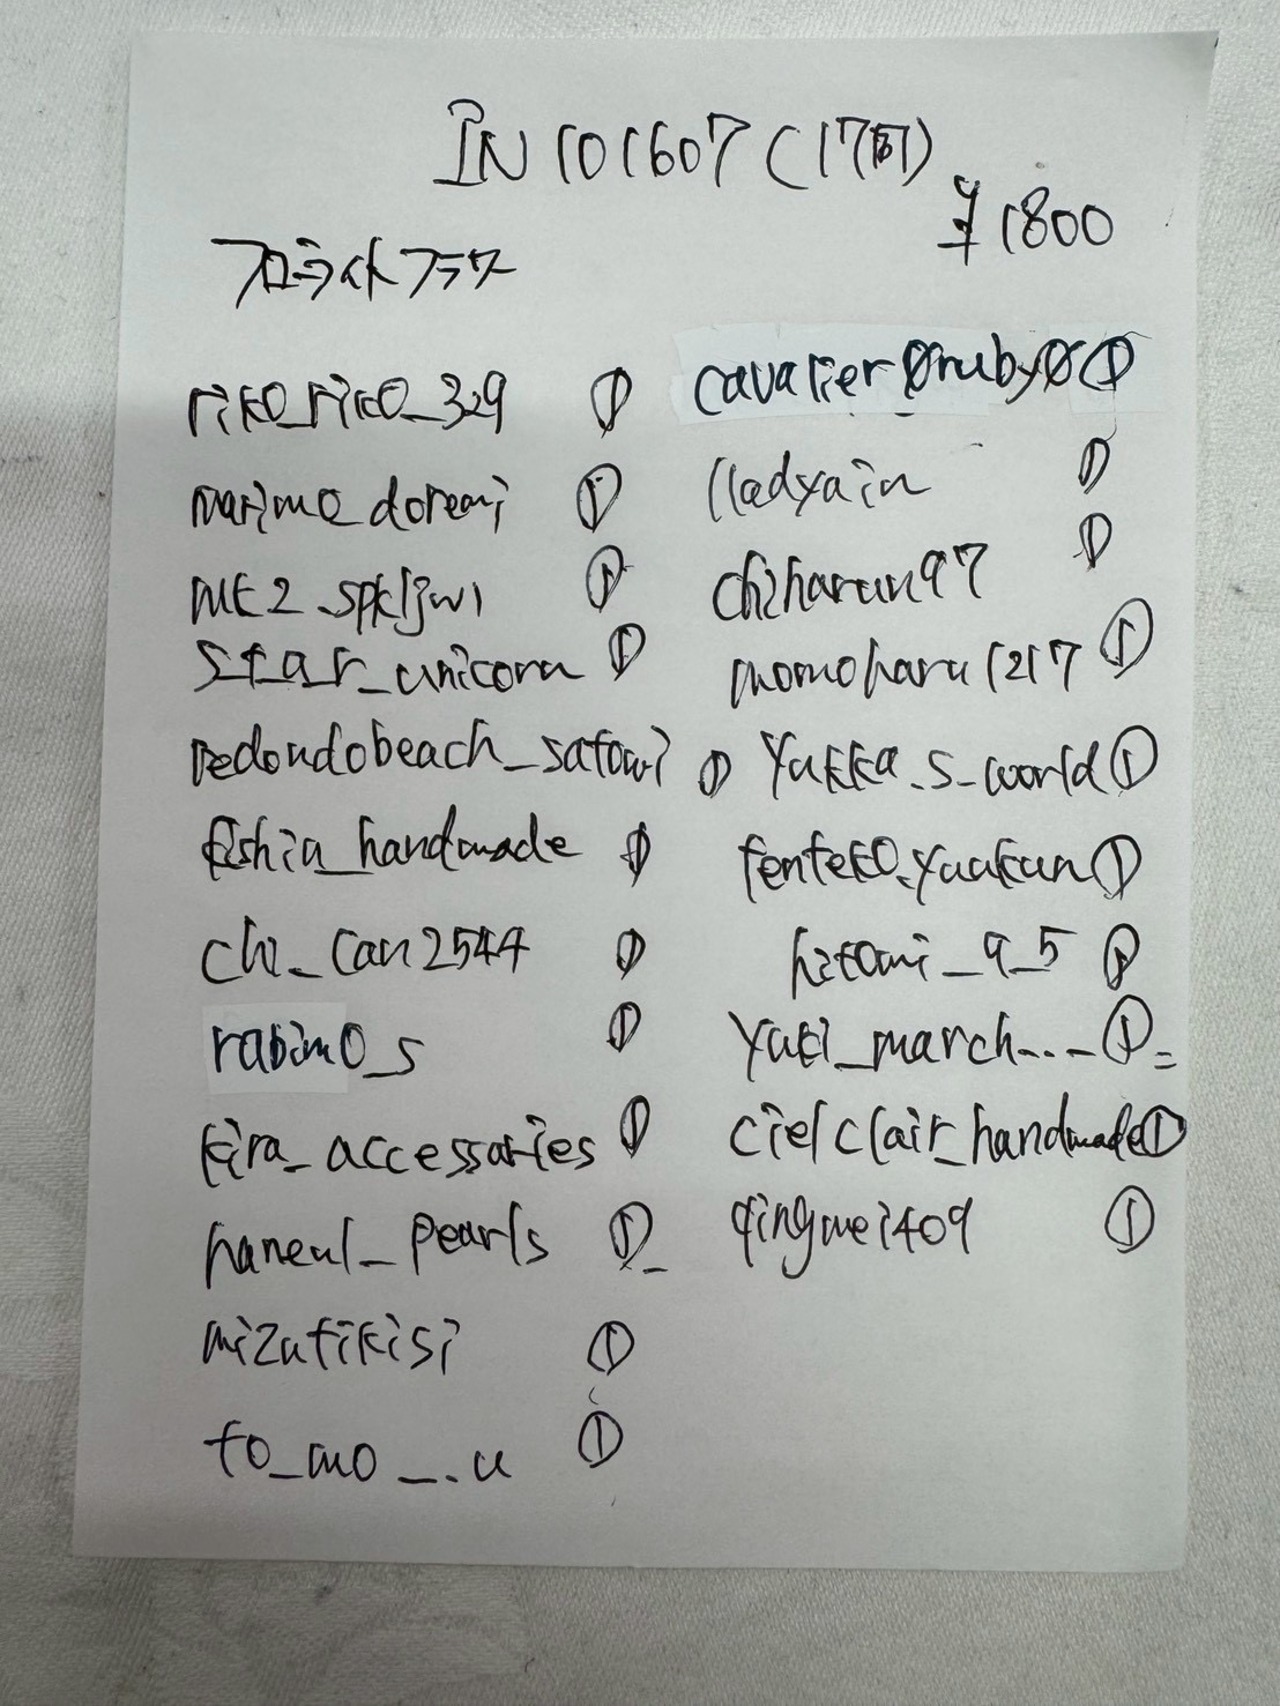 IN 101607 (17冏)
¥1800
フローライトフラワー
riko_riko_329 ①
marimo_doremi ①
mk2_spkljw1 ①
star_unicorn ①
redondobeach_satomi ①
_handmade ①
chi_can2544 ①
rabimo_s ①
kira_accessaries ①
haneul_pearls ①
mizutikisi ①
to_mo__.u ①
cavalier0ruby0 ①
lladyain ①
chiharun97 ①
momoharu1217 ①
yukka.s_world ①
tenteko.yuukun ①
hitomi_9_5 ①
yuki_march..._ ①
cielclair_handmade ①
qingmei409 ①